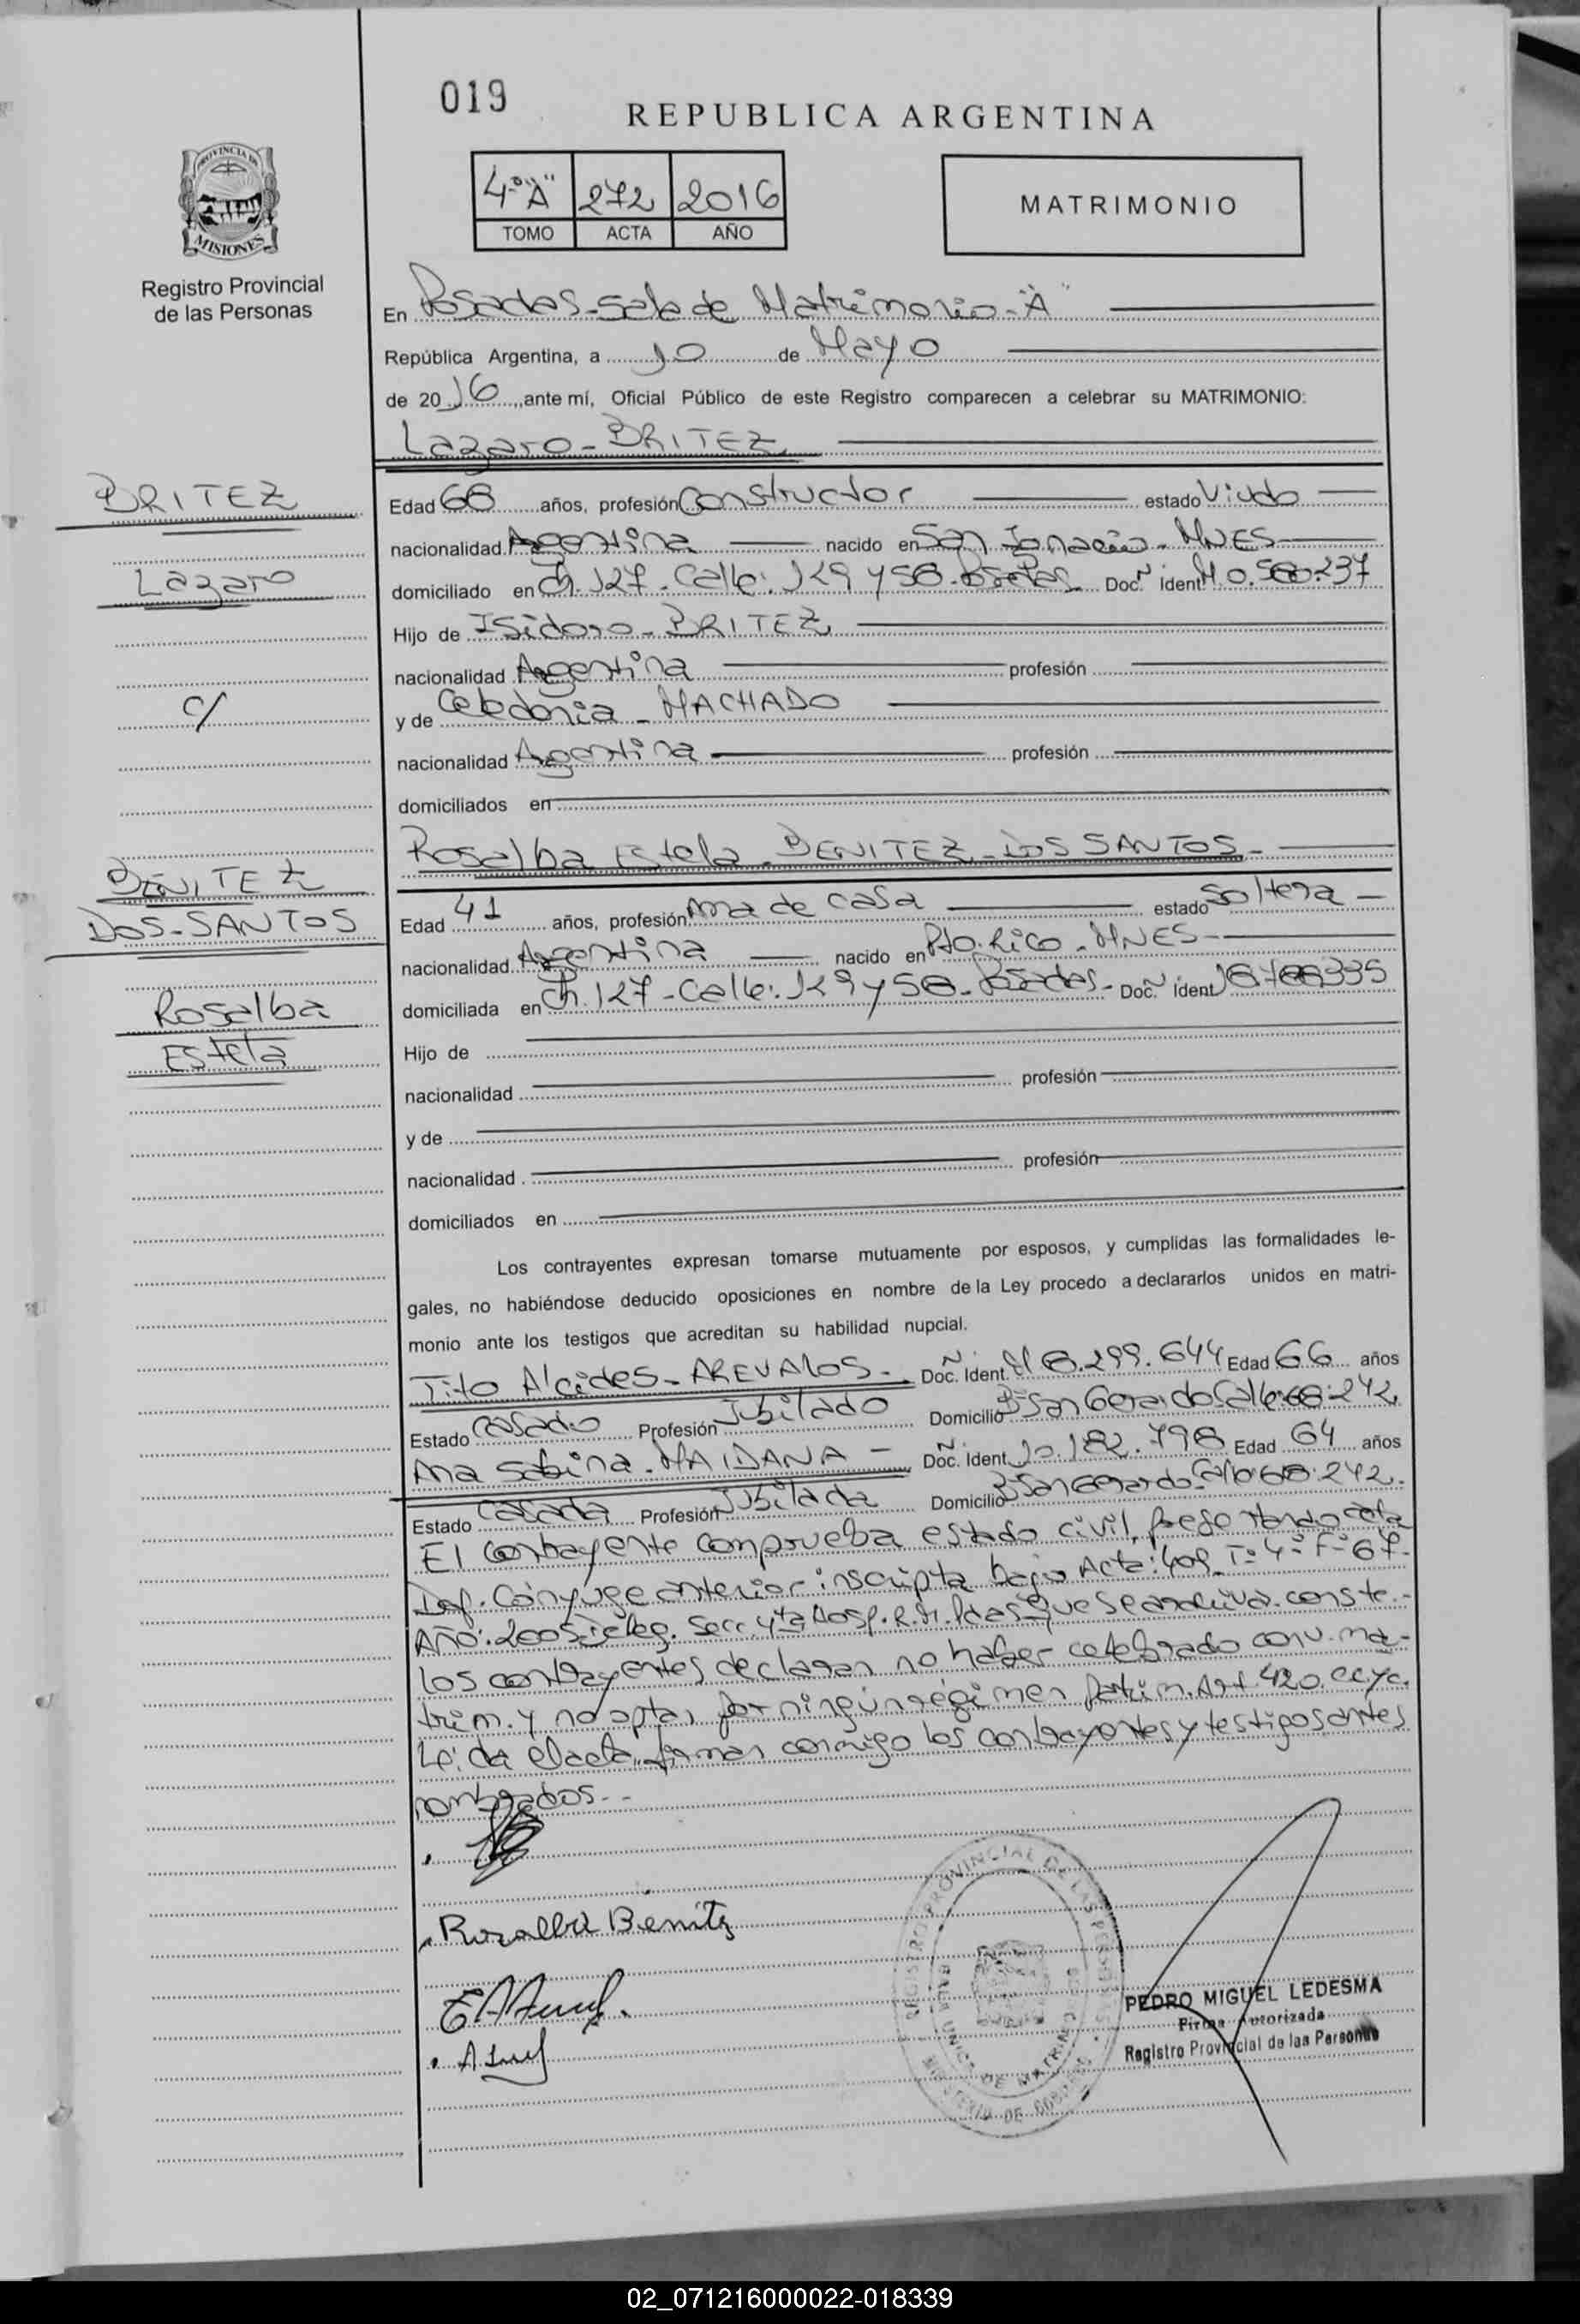 019
REPUBLICA ARGENTINA
4º "A" 272 2016
TOMO ACTA AÑO
MATRIMONIO
PROVINCIA DE
MISIONES
Registro Provincial
de las Personas
En Posadas - Sala de Matrimonio - "A"
República Argentina, a 10 de Mayo
de 2016, ante mí, Oficial Público de este Registro comparecen a celebrar su MATRIMONIO:
Lazaro - BRITEZ
BRITEZ
Lazaro
c/
BENITEZ
DOS-SANTOS
Rosalba
Estela
Edad 68 años, profesión Constructor estado Viudo
nacionalidad Argentina nacido en San Ignacio - MNES
domiciliado en Ch. 127 - Calle: 129 y 58 - Posadas Doc. Ident.
Hijo de Isidoro - BRITEZ
nacionalidad Argentina profesión
y de Celedonia - MACHADO
nacionalidad Argentina profesión
domiciliados en
Rosalba Estela - BENITEZ - DOS SANTOS -
Edad 41 años, profesión Ama de casa estado Soltera
nacionalidad Argentina nacido en Pto. Rico - MNES -
domiciliada en Ch. 127 - Calle: 129 y 58 - Posadas - Doc. Ident.
Hijo de
nacionalidad profesión
y de
nacionalidad profesión
domiciliados en
Los contrayentes expresan tomarse mutuamente por esposos, y cumplidas las formalidades le-
gales, no habiéndose deducido oposiciones en nombre de la Ley procedo a declararlos unidos en matri-
monio ante los testigos que acreditan su habilidad nupcial.
Tito Alcides - AREVALOS - Doc. Ident. M 8.299.644 Edad 66 años
Estado Casado Profesión Jubilado Domicilio Bº San Gerardo Calle: 68: 242
Ana Sabina - MAIDANA - Doc. Ident. 10.182.798 Edad 64 años
Estado Casada Profesión Jubilada Domicilio Bº San Gerardo - Calle: 68: 242.
El contrayente comprueba estado civil, presentando acta
Def. Cónyuge anterior inscripta bajo Acta: 409 Tº 4º Fº 67-
Año: 2005 Deleg. Secc. 4ta Hosp. R. M. Pdas que se archiva. conste.-
los contrayentes declaran no haber celebrado conv. ma-
trim. y no optar por ningún régimen patrim. Art. 420 CCyC.
Leída el acta, firman conmigo los contrayentes y testigos antes
nombrados. -
Rosalba Benitez
REGISTRO PROVINCIAL DE LAS PERSONAS
MINISTERIO DE GOBIERNO
PEDRO MIGUEL LEDESMA
Firma Autorizada
Registro Provincial de las Personas
02_071216000022-018339